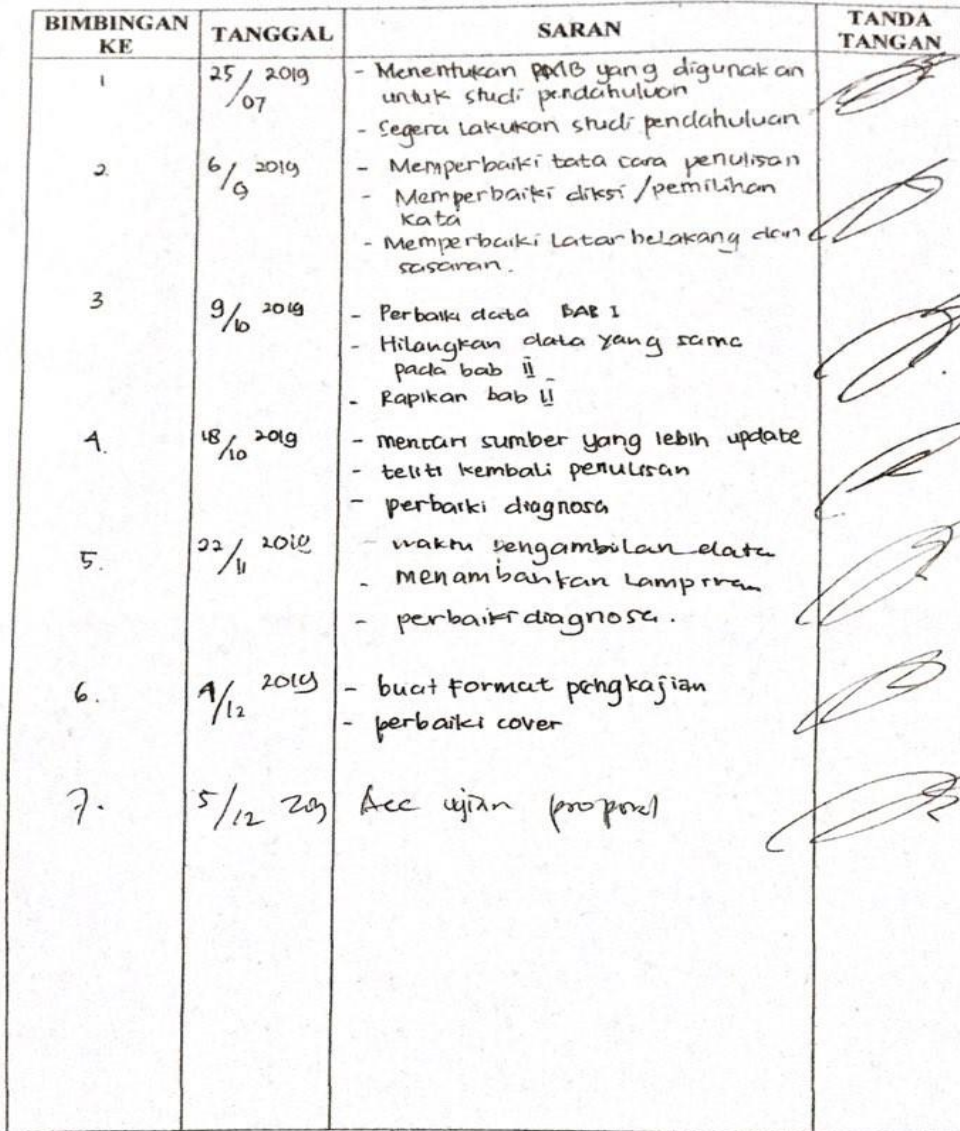 BIMBINGAN KE TANGGAL SARAN TANDA TANGAN
1 25/07 2019 - Menentukan PMB yang digunakan
untuk studi pendahuluan
- Segera lakukan studi pendahuluan
2. 6/9 2019 - Memperbaiki tata cara penulisan
- Memperbaiki diksi / pemilihan
kata
- Memperbaiki Latar belakang dan
sasaran.
3 9/10 2019 - Perbaiki data BAB I
- Hilangkan data yang sama
pada bab ii
- Rapikan bab ii
4. 18/10 2019 - mencari sumber yang lebih update
- teliti kembali penulisan
- perbaiki diagnosa
5. 22/11 2019 - waktu pengambilan data
- menambahkan Lampiran
- perbaiki diagnosa.
6. 4/12 2019 - buat Format pengkajian
- perbaiki cover
7. 5/12 2019 Acc ujian proposal